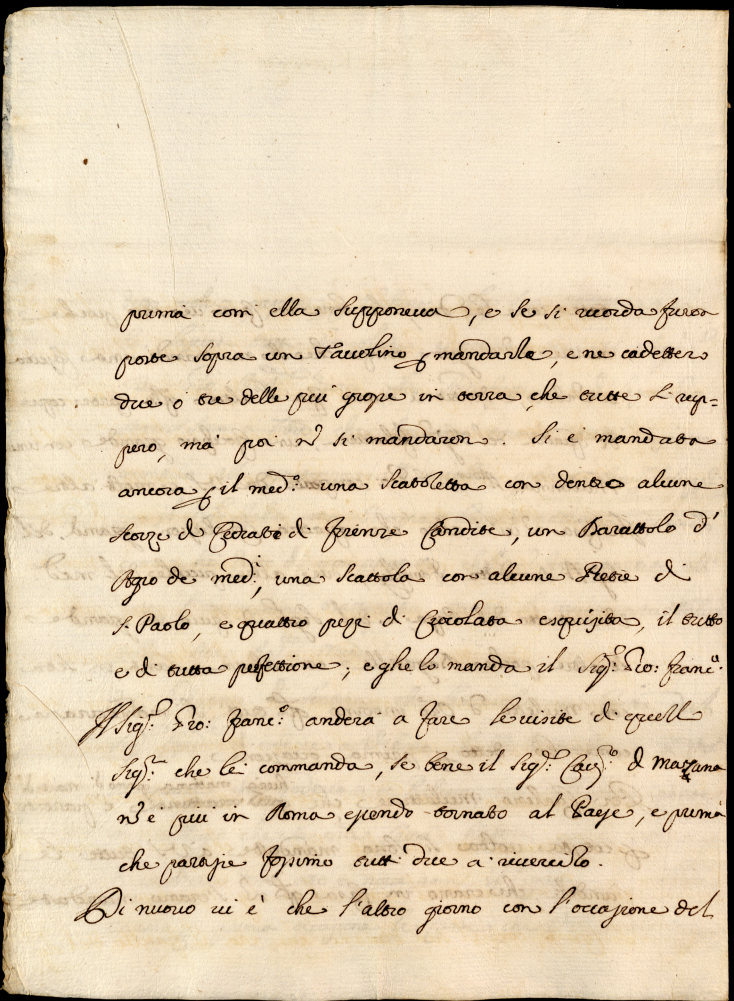 prima com ella supponeua, e se si ricorda furon
poste sopra un Tauolino p mandarle, e ne cadettero
due ó tre delle piú grosse in terra, che tutte si rup=
pero, má poi nō si mandaron. Si é mandata
ancora p il med.º una scatoletta con dentro alcune
scorze di Cedrati di firenze Condite, un Barattolo d'
Agro de med.i, una scattola con alcune Pietre di
S. Paolo, e quattro pezzi di Cioccolata esquisita, il tutto
e di tutta perfettione; e ghe lo manda il Sig.r Gio: Franc.º
Il Sig.r Gio: Franc.º anderá a fare le uisite di quelli
Sig.ri che lei commanda, se bene il Sig.r Cau.r d
nō é piú in Roma essendo tornato al Paese, e prima
che partisse fossimo tutti due a riuerirlo.
Di nuouo ui è che l'altro giorno con l'occasione del